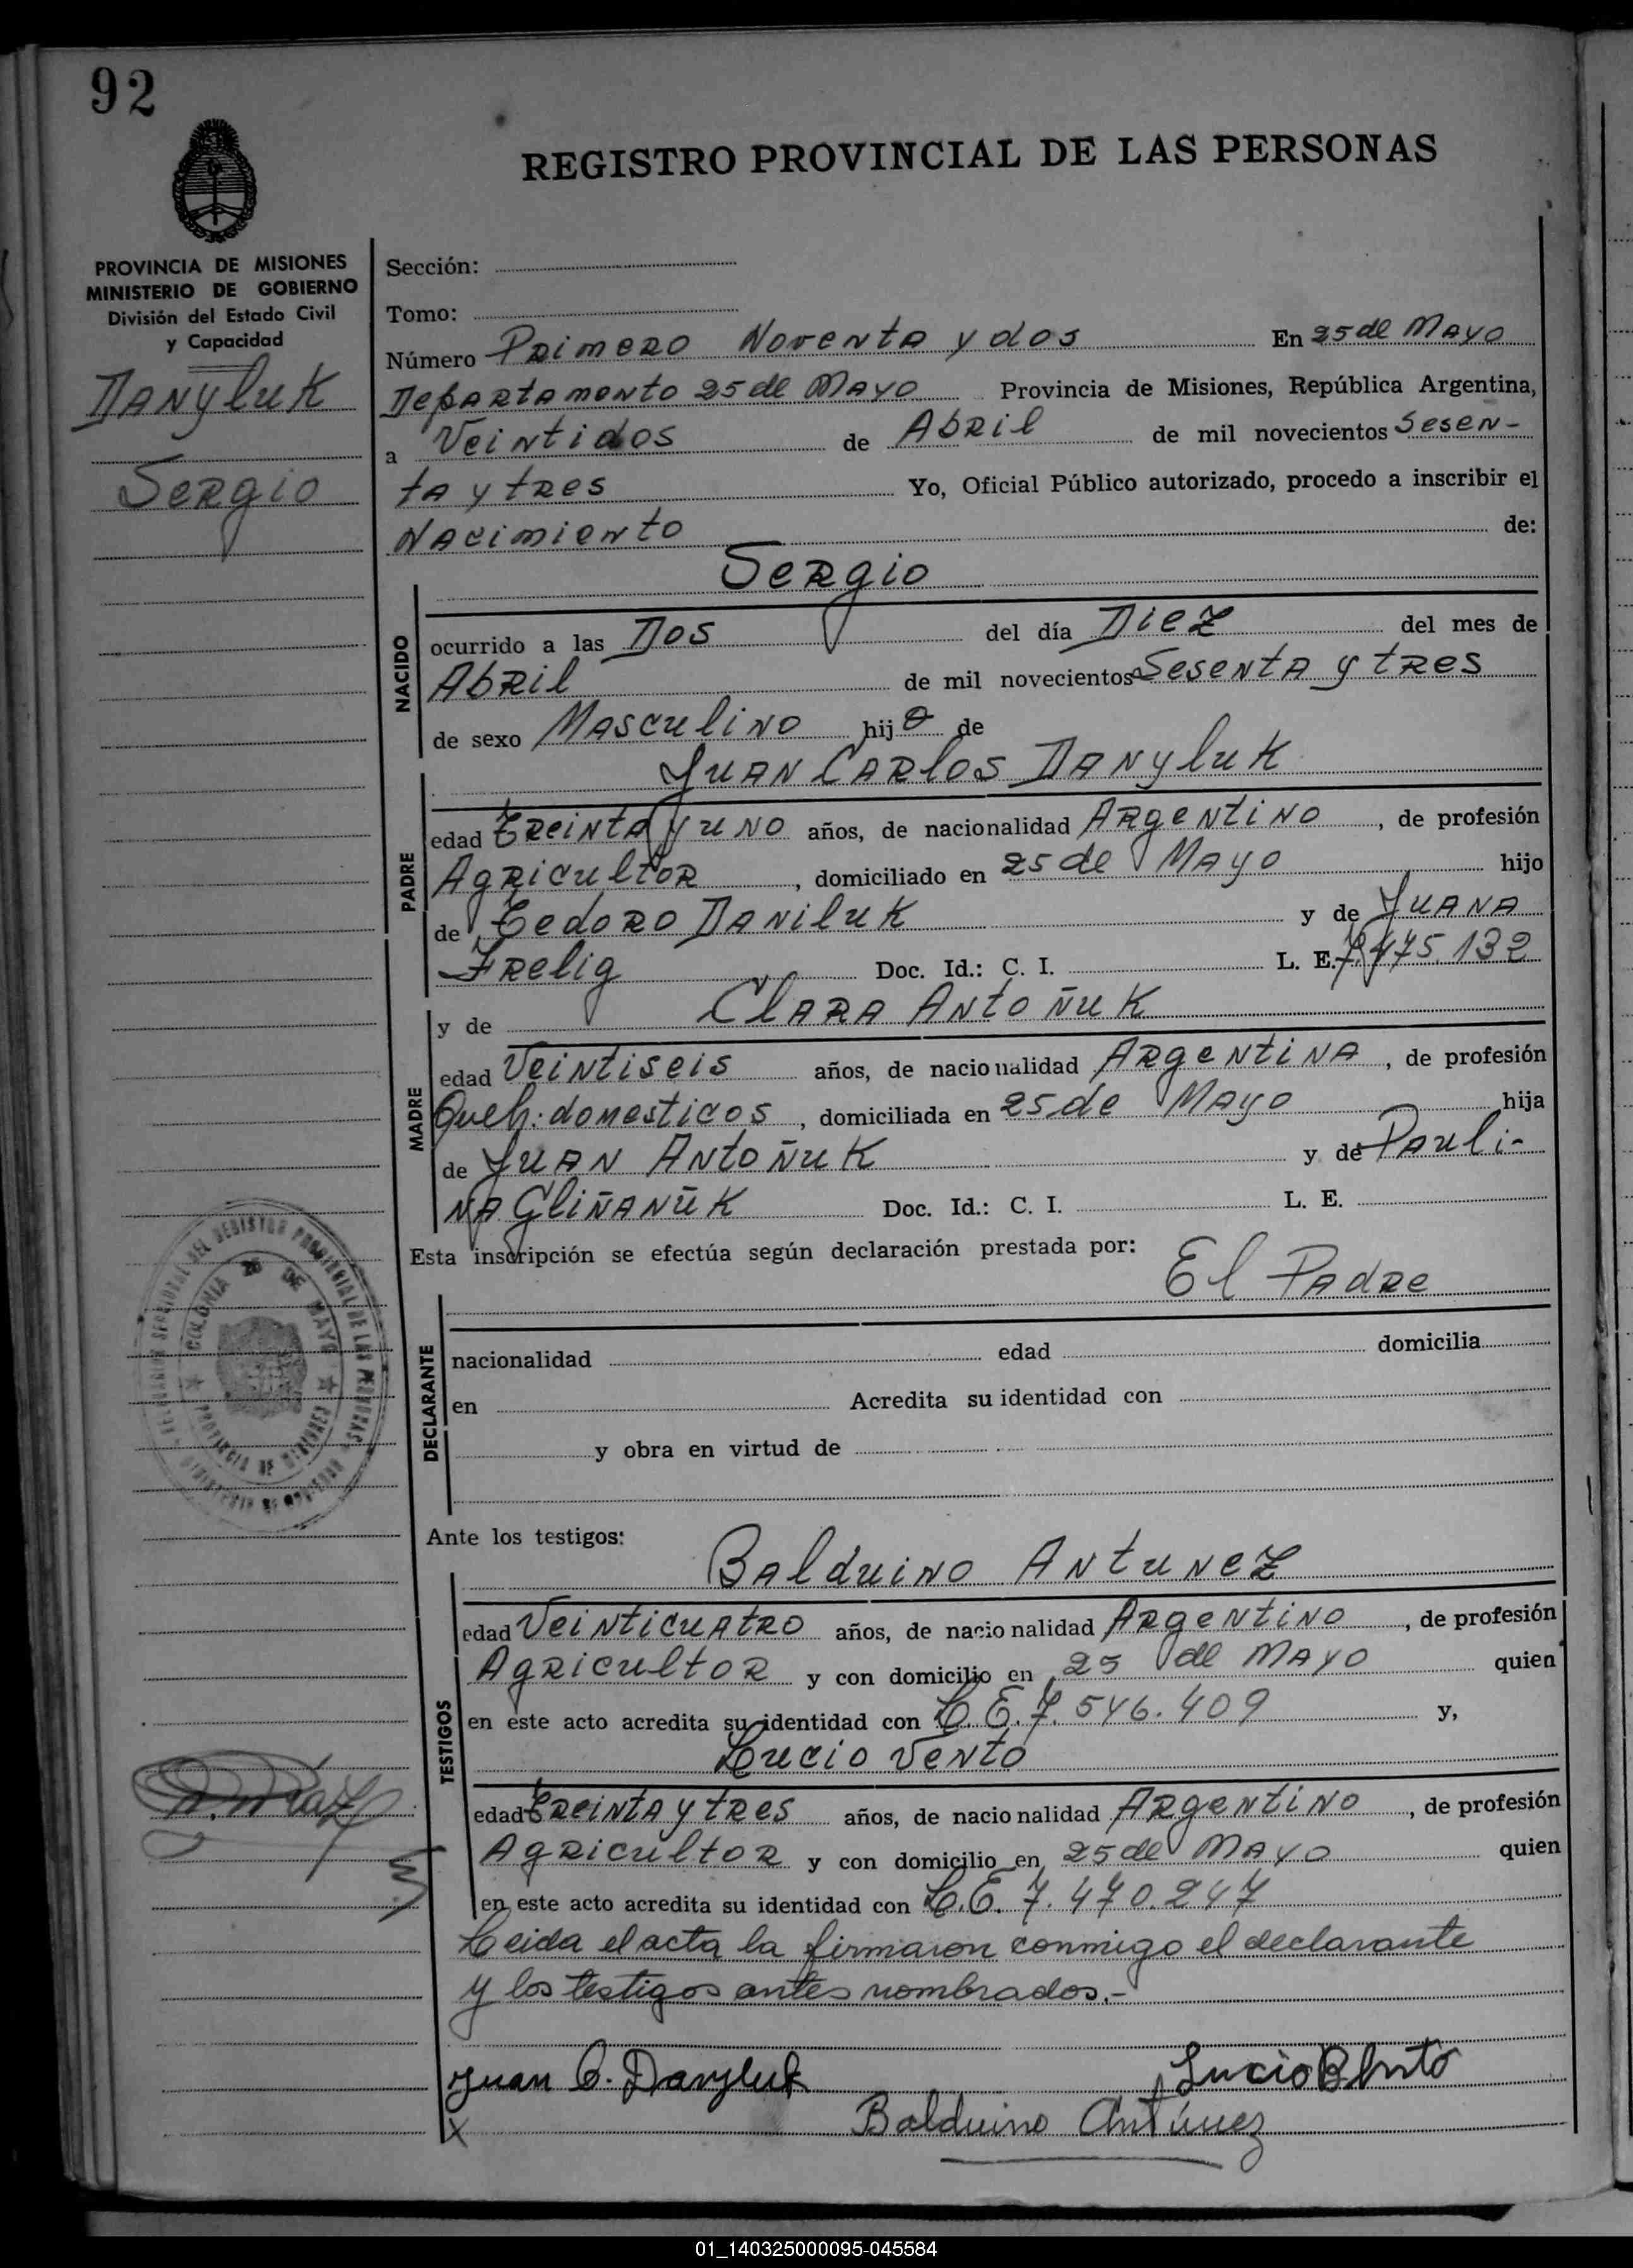 92
REGISTRO PROVINCIAL DE LAS PERSONAS
PROVINCIA DE MISIONES
MINISTERIO DE GOBIERNO
División del Estado Civil
y Capacidad
Danyluk
Sergio
Sección:
Tomo:
Número Primero Noventa y dos En 25 de Mayo
Departamento 25 de Mayo Provincia de Misiones, República Argentina,
a Veintidos de Abril de mil novecientos Sesen-
ta y tres Yo, Oficial Público autorizado, procedo a inscribir el
Nacimiento de:
Sergio
NACIDO
ocurrido a las Dos del día Diez del mes de
Abril de mil novecientos Sesenta y tres
de sexo Masculino hijo de
Juan Carlos Danyluk
PADRE
edad Treinta y uno años, de nacionalidad Argentino, de profesión
Agricultor, domiciliado en 25 de Mayo hijo
de Tedoro Daniluk y de Juana
Frelig Doc. Id.: C. I. L. E. 7.475.132
y de Clara Antoñuk
MADRE
edad Veintiseis años, de nacionalidad Argentina, de profesión
Queh. domesticos, domiciliada en 25 de Mayo hija
de Juan Antoñuk y de Pauli-
na Gliñañuk Doc. Id.: C. I. L. E.
Esta inscripción se efectúa según declaración prestada por:
El Padre
DECLARANTE
nacionalidad edad domicilia
en Acredita su identidad con
y obra en virtud de
COLONIA 25 DE MAYO
PROVINCIA DE MISIONES
Ante los testigos:
Balduino Antunez
TESTIGOS
edad Veinticuatro años, de nacionalidad Argentino, de profesión
Agricultor y con domicilio en 25 de Mayo quien
en este acto acredita su identidad con L.E. 7.546.409 y,
Lucio Vento
edad Treinta y tres años, de nacionalidad Argentino, de profesión
Agricultor y con domicilio en 25 de Mayo quien
en este acto acredita su identidad con L.E. 7.470.247
Leida el acta la firmaron conmigo el declarante
y los testigos antes nombrados.-
Juan C. Danyluk
Lucio
X
Balduino Antúnez
01_140325000095-045584